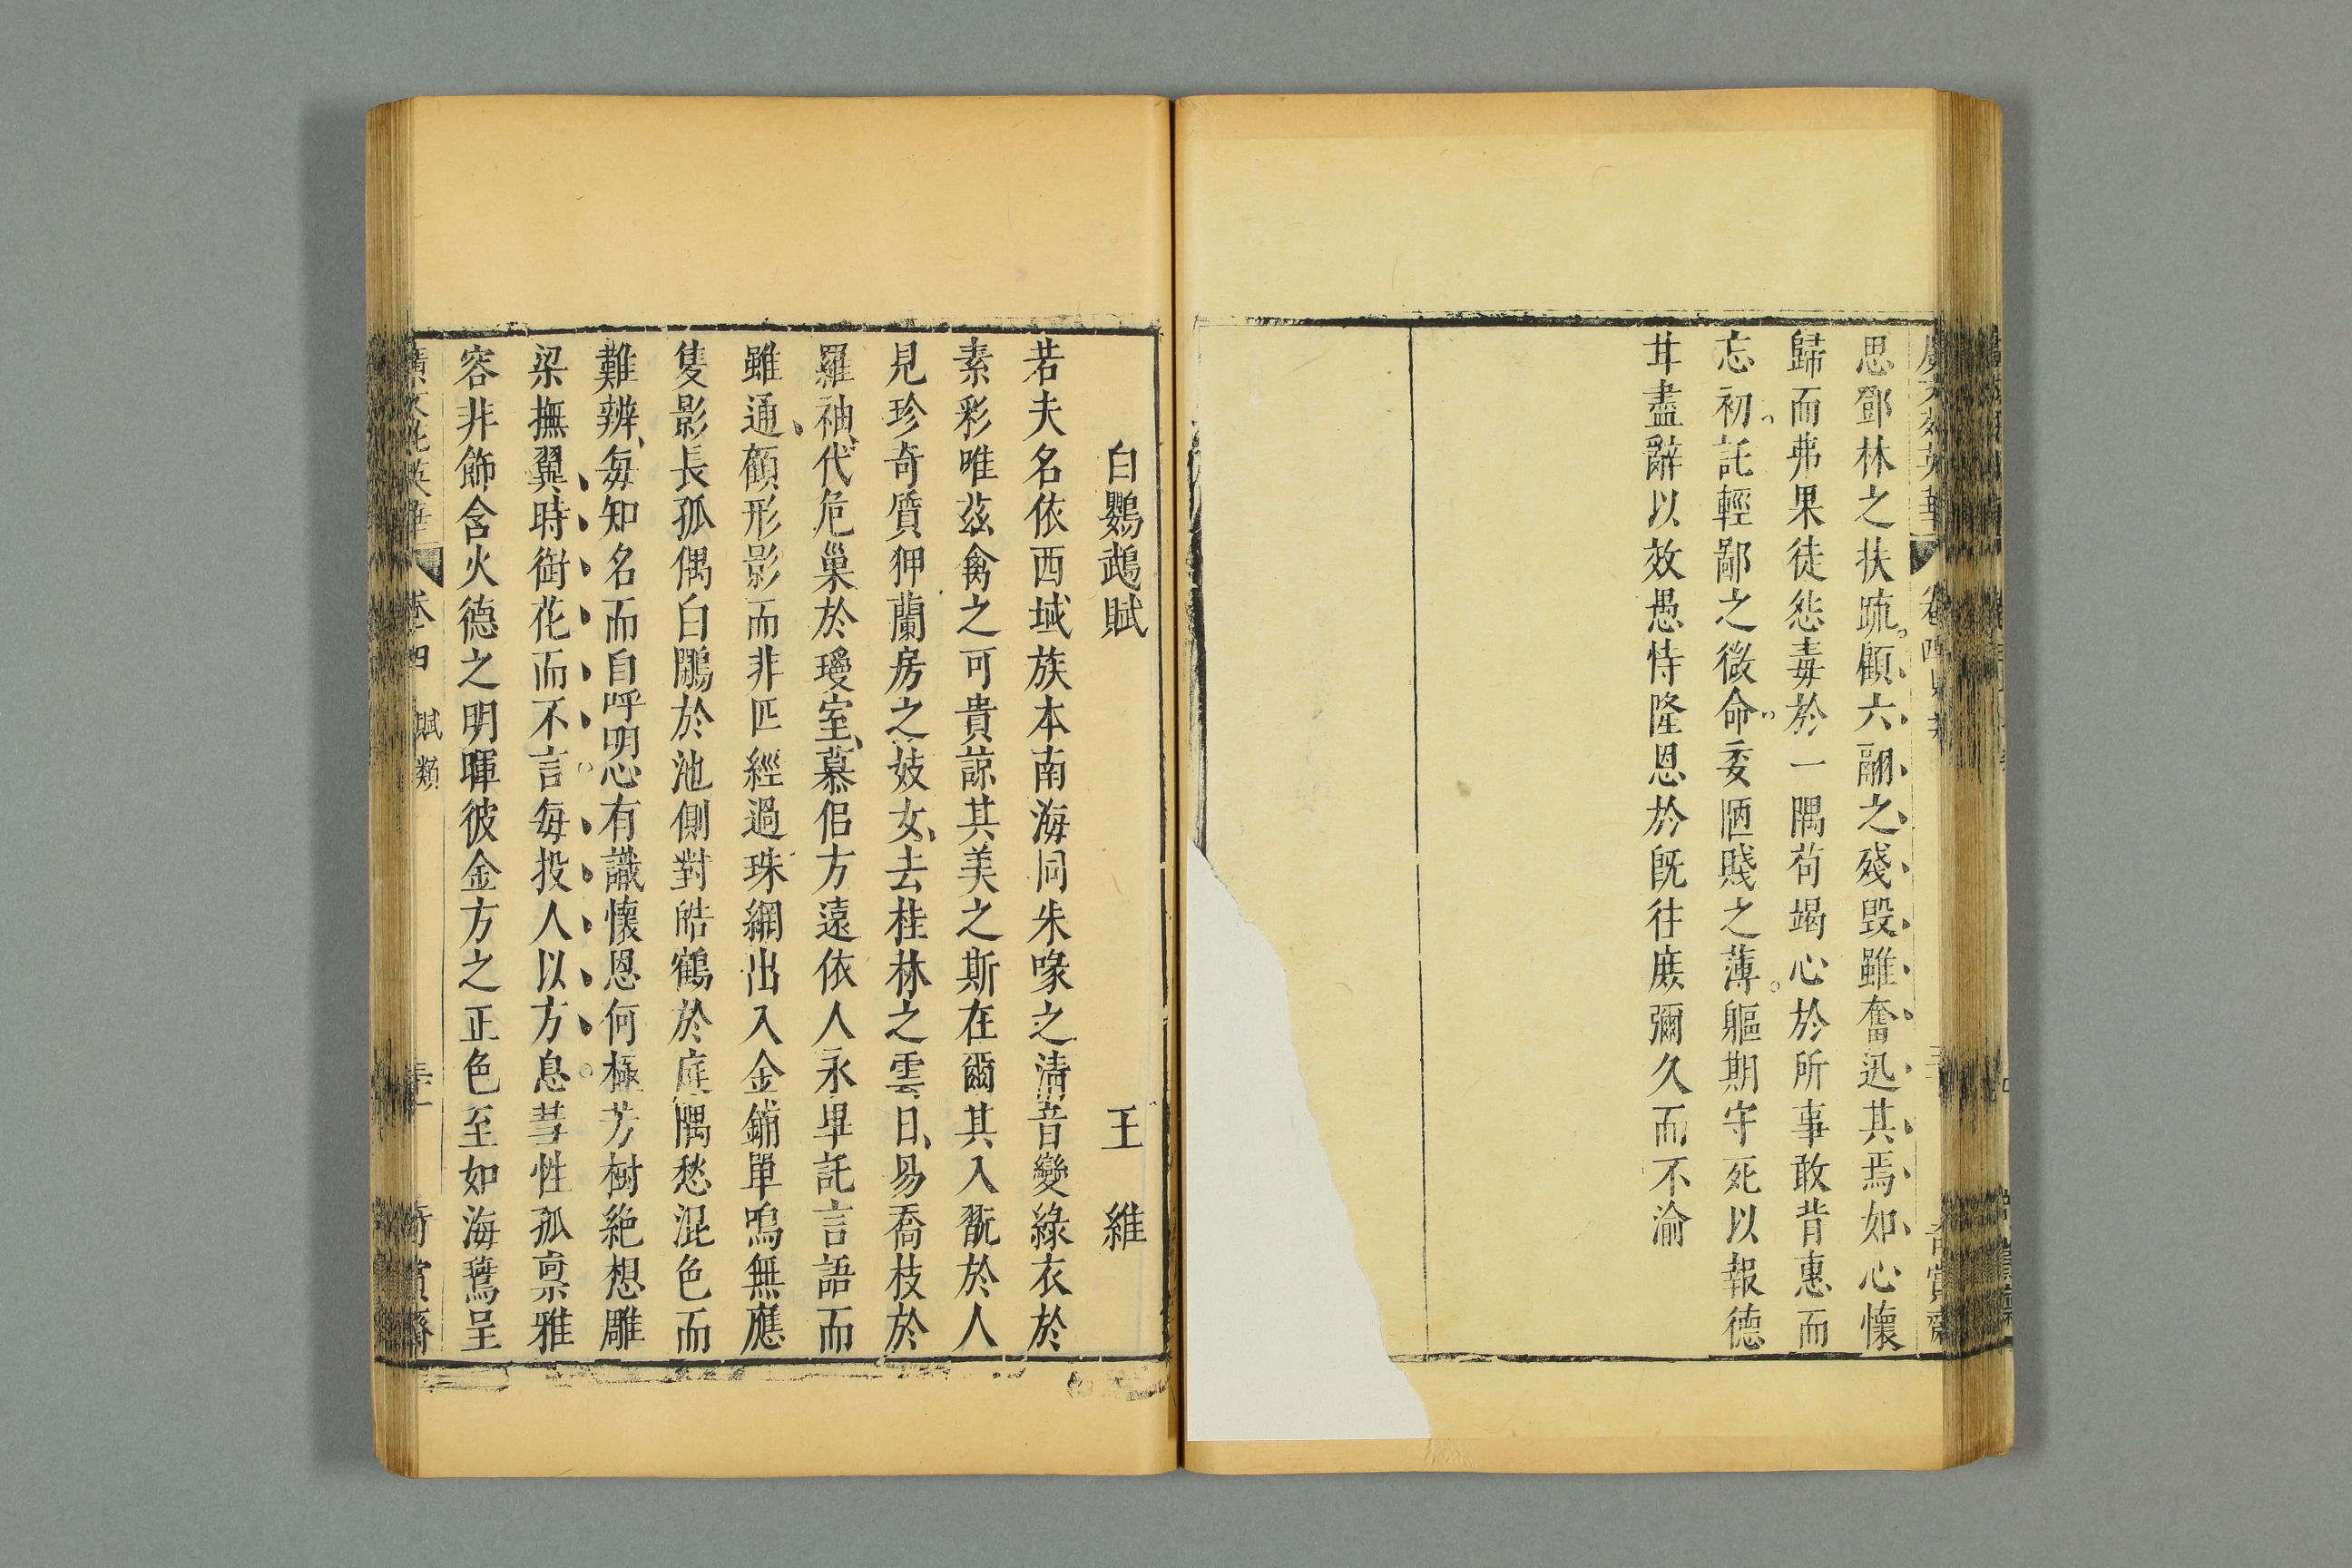 思鄧林之扶疏顧六翮之殘毀雖奮迅其焉如心懷
歸而弗果徒怨毒於一隅苟竭心於所事敢背惠而
忘初託輕鄙之微命委陋賤之薄軀期守死以報德
甘盡辭以效愚恃隆恩於旣往庶彌久而不渝
白鸚鵡賦 王維
若夫名依西域族本南海同朱喙之清音變綠衣於
素彩唯茲禽之可貴諒其美之斯在爾其入翫於人
見珍奇質狎蘭房之妓女去桂林之雲日易喬枝於
羅袖代危巢於瓊室慕侶方遠依人永畢託言語而
雖通顧形影而非匹經過珠網出入金鋪單鳴無應
隻影長孤偶白鷴於池側對皓鶴於庭隅愁混色而
難辨每知名而自呼明心有識懷恩何極芳樹絕想雕
梁撫翼時銜花而不言每投人以方息慧性孤稟雅
容非飾含火德之明暉彼金方之正色至如海鷰呈
廣文苑英華 卷四 賦類 奇賞齋